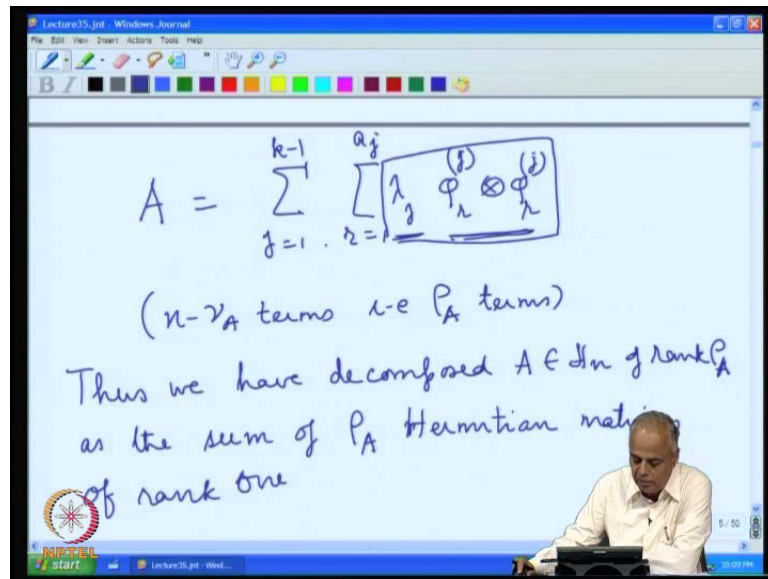 Lecture35.jnt - Windows Journal
File Edit View Insert Actions Tools Help
B I
k-1 a_j
A = Σ Σ λ_j φ_r^(j) ⊗ φ_r^(j)
j=1 . r=1
(n-ν_A terms i-e ρ_A terms)
Thus we have decomposed A ∈ H_n of rank ρ_A
as the sum of ρ_A Hermitian
of rank one
5 / 50
NPTEL
start Lecture35.jnt - Wind... 10:09 PM